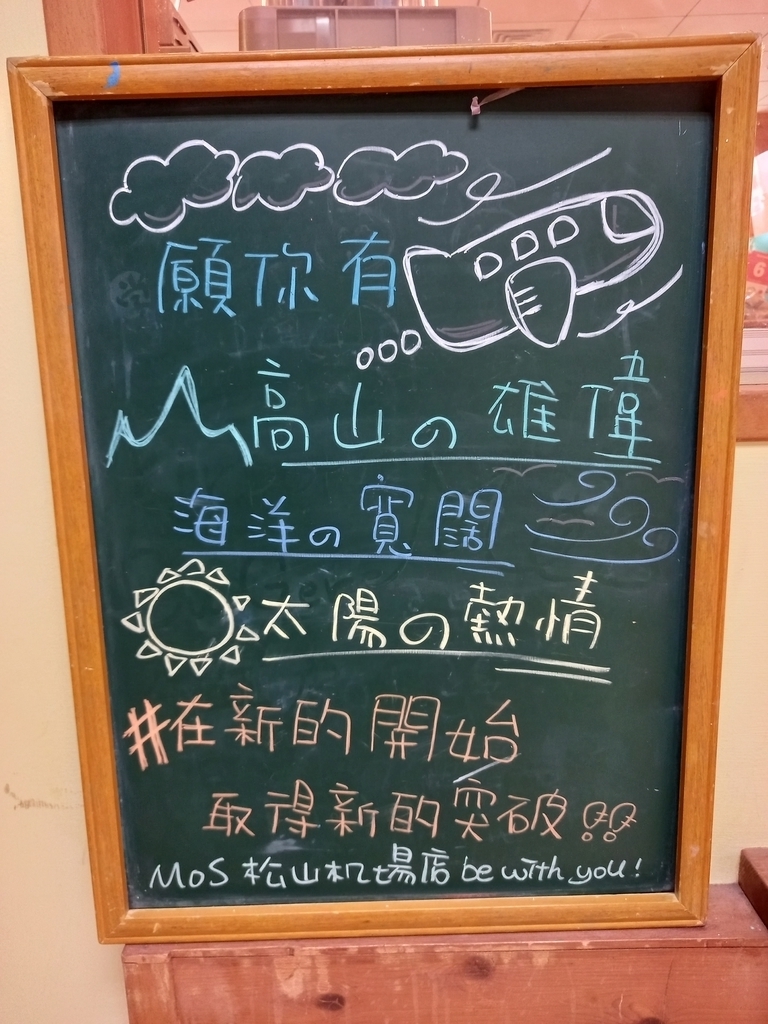 願你有
高山の雄偉
海洋の寬闊
太陽の熱情
#在新的開始
取得新的突破!!
MoS 松山机場店 be with you!